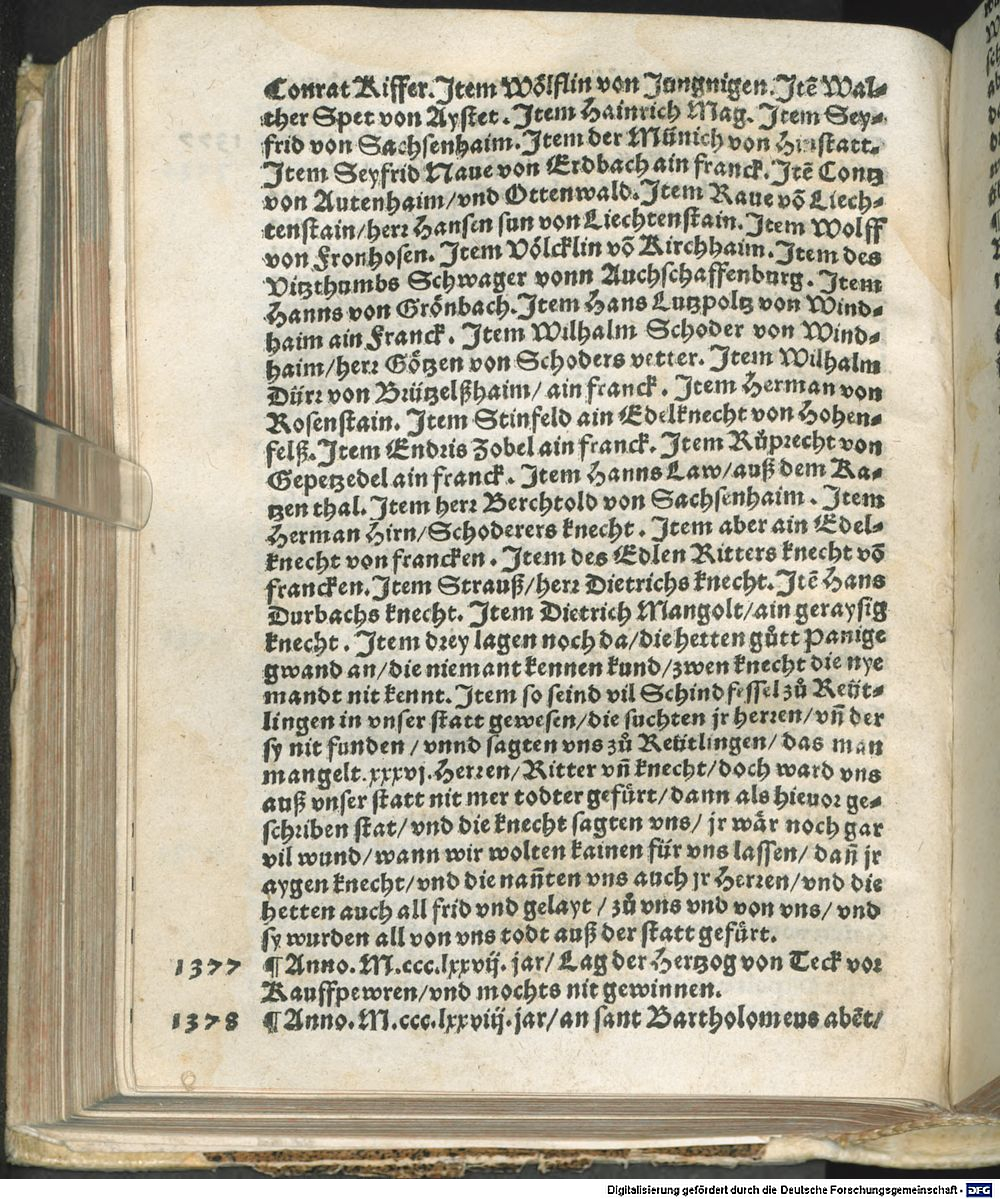 Conrat Kiffer. Item Wölfflin von Jungnigen. Itē Wal⸗
ther Spet von Aystet. Item Hainrich Mag. Item Sey⸗
frid von Sachsenhaim. Item der Münich von
Item Seyfrid Naue von Erdbach ain franck. Itē Contz
von Autenhaim/ vnd Ottenwald. Item Raue vō Liech⸗
tenstain/ herr Hansen sun von Liechtenstain. Item Wolff
von Fronhofen. Item Völcklin vō Kirchhaim. Item des
Vitzthumbs Schwager vonn Auchschaffenburg. Item
Hanns von Grönbach. Item Hans Lutzpoltz von Wind⸗
haim ain Franck. Item Wilhalm Schoder von Wind⸗
haim/ herr Götzen von Schoders vetter. Item Wilhalm
Dürr von Brützelßhaim/ ain franck. Item Herman von
Rosenstain. Item Stinfeld ain Edelknecht von Hohen⸗
felß. Item Endris Zobel ain franck. Item Růprecht von
Gepetzedel ain franck. Item Hanns Law/ auß dem Ka⸗
tzen thal. Item herr Berchtold von Sachsenhaim. Item
Herman Hirn/ Schoderers knecht. Item aber ain Edel⸗
knecht von francken. Item des Edlen Ritters knecht vō
francken. Item Strauß/ herr Dietrichs knecht. Itē Hans
Durbachs knecht. Item Dietrich Mangolt/ ain geraysig
knecht. Item drey lagen noch da/ die hetten gůtt Panige
gwand an/ die niemant kennen kund/ zwen knecht die nye
mandt nit kennt. Item so seind vil Schindfessel zů Reüt⸗
lingen in vnser statt gewesen/ die suchten jr herren/ vn̄ der
sy nit funden/ vnnd sagten vns zů Reütlingen/ das man
mangelt. xxxvj. Herren/ Ritter vn̄ knecht/ doch ward vns
auß vnser statt nit mer todter gefürt/ dann als hieuor ge⸗
schriben stat/ vnd die knecht sagten vns/ jr wär noch gar
vil wund/ wann wir wolten kainen für vns lassen/ dan̄ jr
aygen knecht/ vnd die nan̄ten vns auch jr Herren/ vnd die
hetten auch all frid vnd gelayt/ zů vns vnd von vns/ vnd
sy wurden all von vns todt auß der statt gefürt.
1377 ¶ Anno. M.ccc.lxxvij. jar/ Lag der Hertzog von Teck vor
Kauffpewren/ vnd mochts nit gewinnen.
1378 ¶ Anno. M.ccc.lxxviij. jar/ an sant Bartholomeus abēt/
Digitalisierung gefördert durch die Deutsche Forschungsgemeinschaft - DFG